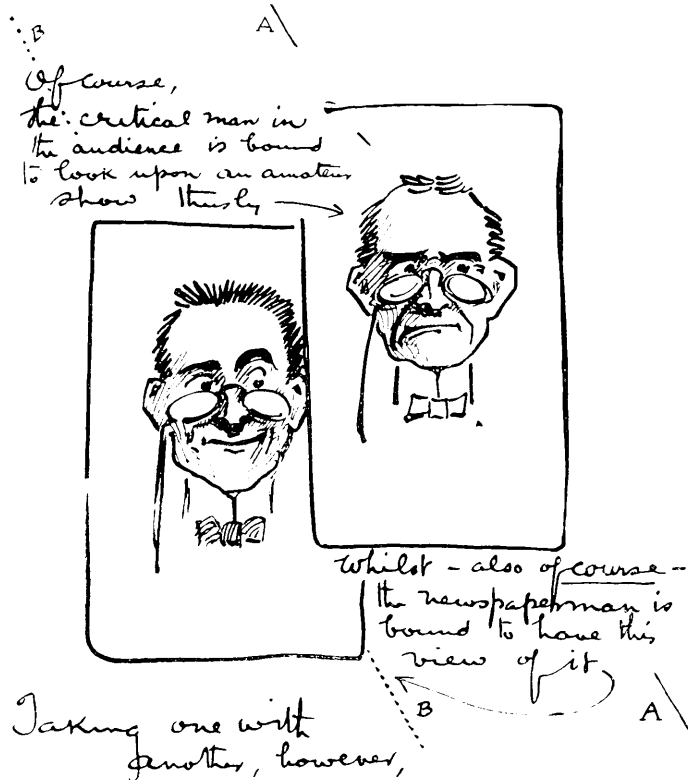 B
A
Of course,
the critical man in
the audience is bound
to look upon an amateur
show thusly
Whilst - also of course -
the newspaperman is
bound to have this
view of it
B
A
Taking one with
another, however,